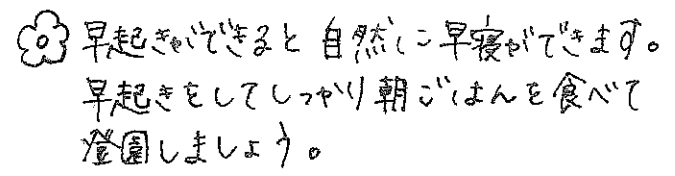 早起きができると自然に早寝ができます。
早起きをしてしっかり朝ごはんを食べて
登園しましょう。